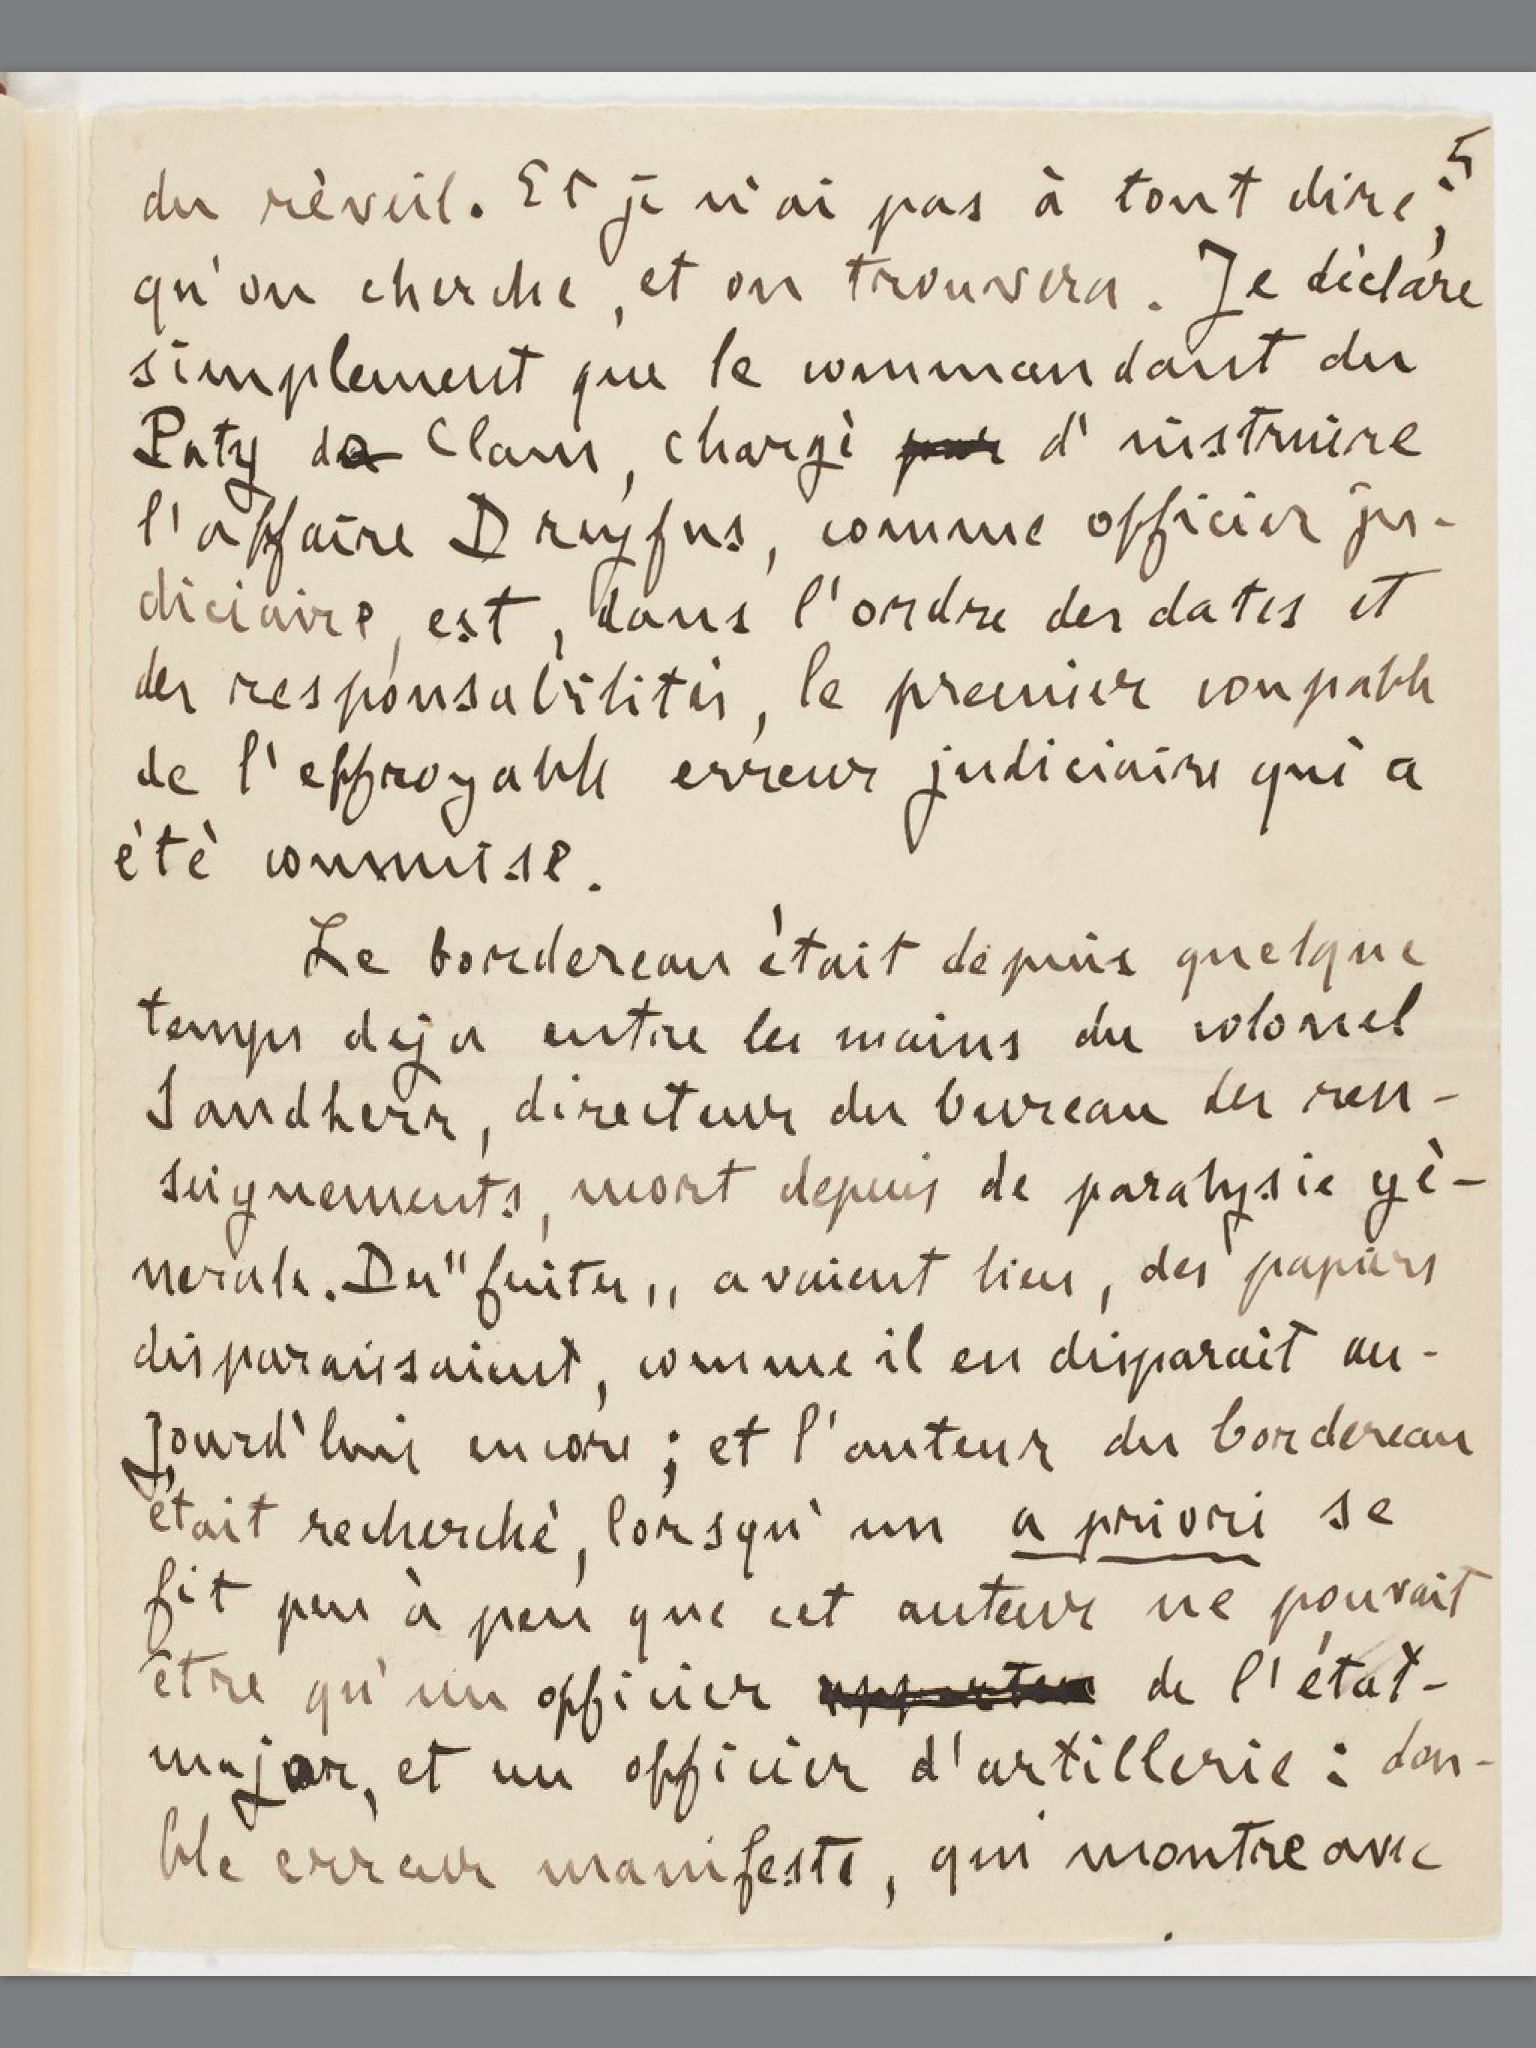 5
du réveil. Et je n'ai pas à tout dire;
qu'on cherche, et on trouvera. Je déclare
simplement que le commandant du
Paty de Clam, chargé par d'instruire
l'affaire Dreyfus, comme officier ju-
diciaire, est, dans l'ordre des dates et
des responsabilités, le premier coupable
de l'effroyable erreur judiciaire qui a
été commise.
Le bordereau était depuis quelque
temps deja entre les mains du colonel
Sandherr, directeur du bureau des ren-
seignements, mort depuis de paralysie gé-
nerale. Des "fuites" avaient lieu, des papiers
disparaissaient, comme il en disparait au-
jourd'hui encore; et l'auteur du bordereau
était recherché, lorsqu'un a priori se
fit peu à peu que cet auteur ne pouvait
être qu'un officier de l'état-
major, et un officier d'artillerie: dou-
ble erreur manifeste, qui montre avec